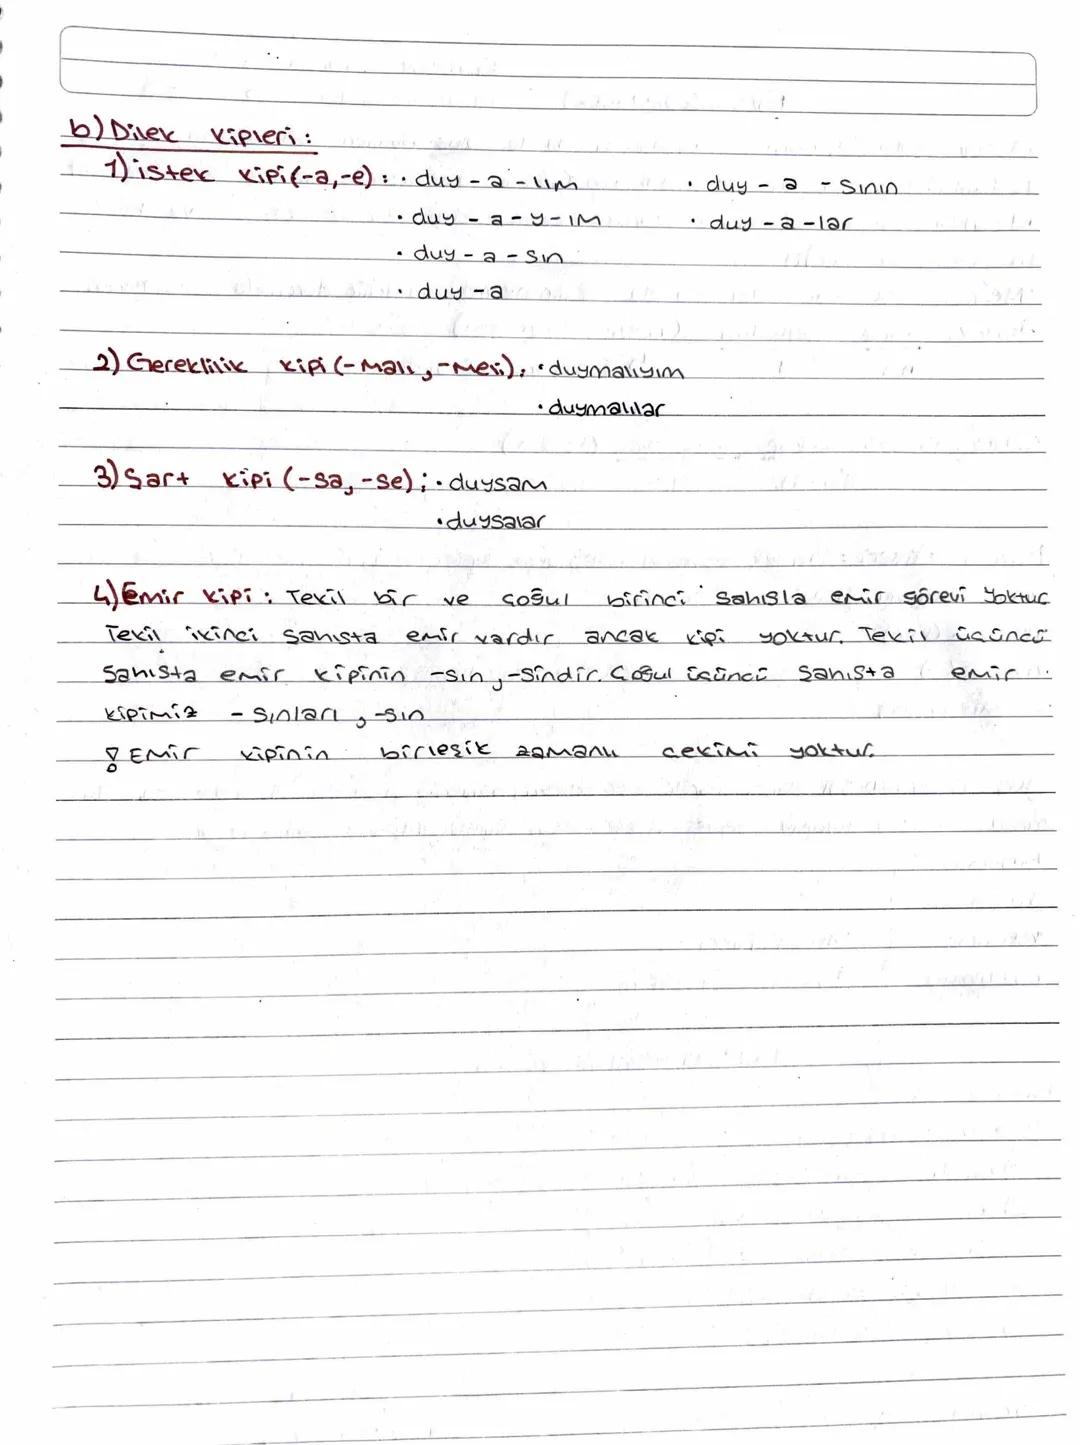 b) Dilek kipleri :
1) istek kipi (-a,-e) : · duy - a - lım · duy - a - sının
· duy - a - y - ım · duy - a - lar
· duy - a - sın
· duy - a
2) Gereklilik kipi (-malı, -meli); · duymalıyım
· duymalılar
3) Şart kipi (-sa, -se); · duysam
· duysalar
4) Emir kipi : Tekil bir ve çoğul birinci şahısla emir görevi yoktur
Tekil ikinci şahısta emir vardır ancak kipi yoktur. Tekil üçüncü
şahısta emir kipinin -sın, -sindir. Çoğul üçüncü şahısta emir
kipimiz - sınları, -sın
! Emir kipinin birleşik zamanlı çekimi yoktur.